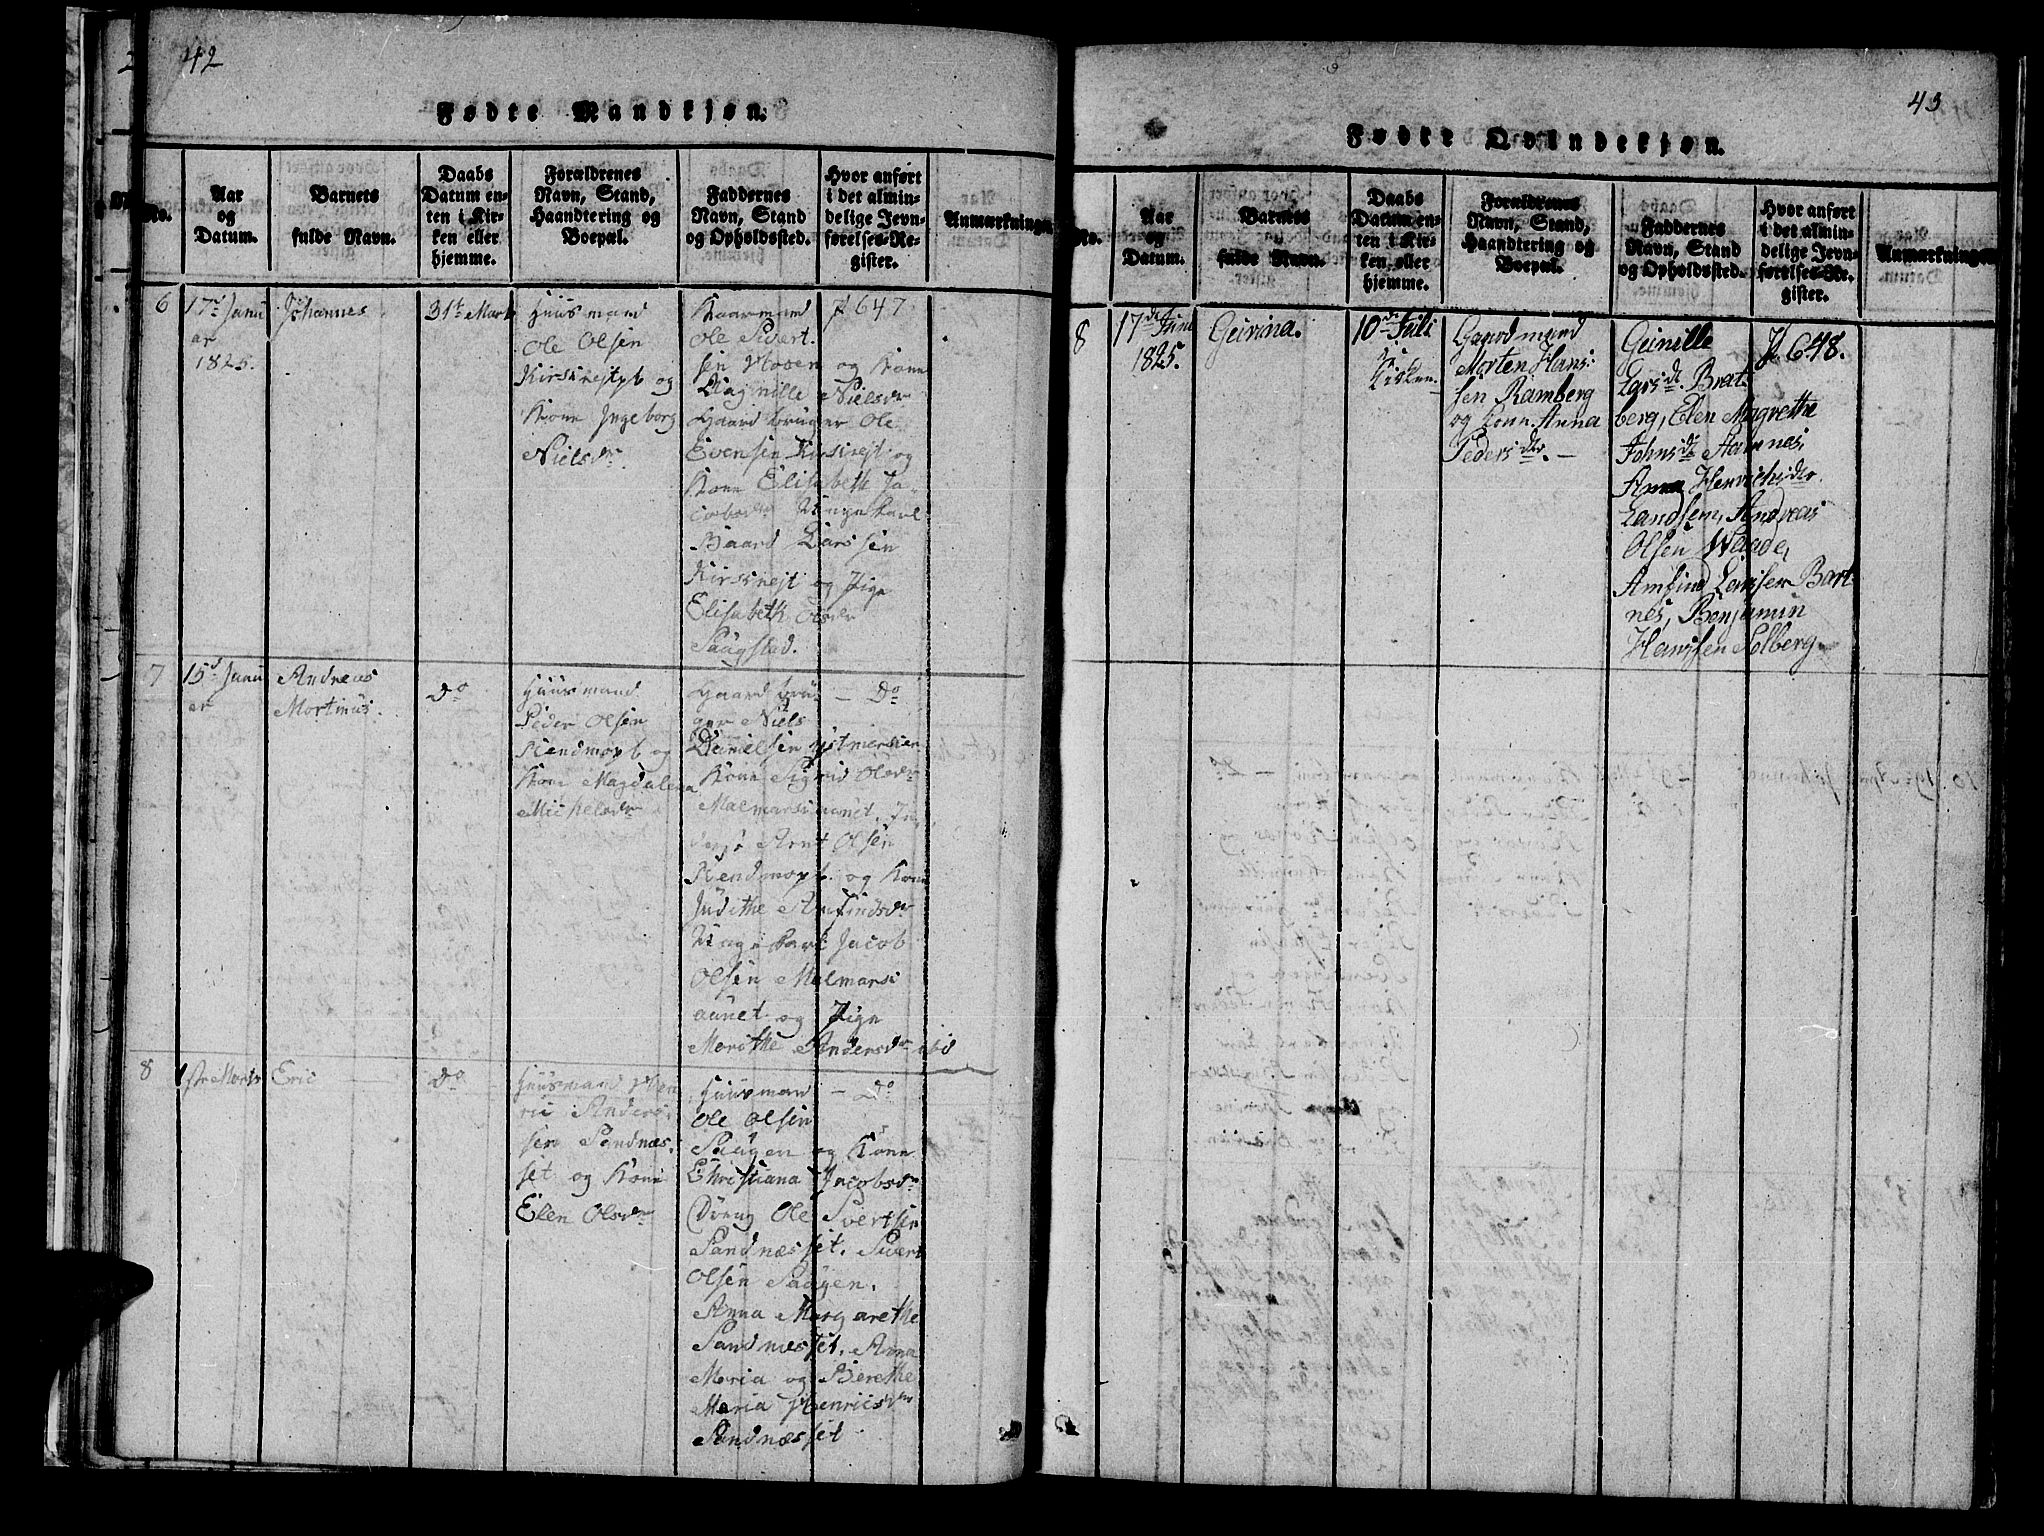 42
Fødte Mandkjøn.
No.
Aar
og
Datum.
Barnets
fulde Navn.
Daabs
Datum en-
ten i Kir-
ken eller
hjemme.
Forældrenes
Navn, Stand,
Haandtering og
Boepæl.
Faddernes
Navn, Stand
og Opholdssted.
Hvor anført
i det almin-
delige Jevn-
førelses-Re-
gister.
Anmærkninger
6
17de Janu
ar
1825.
Johannes
31te Marts
Huusmand
Ole Olsen
og
Kone Ingeborg
Nielsdr
Gaardmand
Ole Sivert
sen Mosen og Kone
Nielsdr
Gaardbruger Ole
Evensen og
Kone Elisabeth Ja-
cobsdr Ungekarl
Baard Larssen
og Pige
Elisabeth Olsdr
Saagstad.
p 647
7
15d Janu
ar
Andreas
Mortinus.
do
Huusmand
Peder Olsen
og
Kone Magdalena
Michelsdr
Gaardbru-
ger Niels
Danielsen
Kone Sigrid Olsdr
Malmarsaunet.
Arnt Olsen
og Kone
Judithe Arnfindsdr
Ungekarl Jacob
Olsen Malmars
aunet og Pige
Merethe Andersdr ibid
— do
8
1ste Marts
Eric
do
Huusmand Hen
ric Anders-
sen Sandnæs-
set og Kone
Elen Olsdr
Huusmand
Ole Olsen
Saagen og Kone
Christiana Jacobsdr
Dreng Ole Sivertsen
Sandnæsset. Sivert
Olsen Saagen.
Anna Margarethe
Sandnæsset. Anna
Maria og Berethe
Maria Henricsdr
Sandnæsset
— do
43
Fødte Qvindekjøn.
No.
Aar
og
Datum.
Barnets
fulde Navn.
Daabs
Datum en-
ten i Kir-
ken, eller
hjemme.
Forældrenes
Navn, Stand,
Haandtering og
Boepæl.
Faddernes
Navn, Stand
og Opholdssted.
Hvor anført
i det almin-
delige Jevn-
førelses-Re-
gister.
Anmærkninger
8
17de Juni
1825.
Gurina.
10de Juli
i
Kirken.
Gaardmand
Morten Hans-
sen Ramberg
og Kone Anna
Pedersdtr. —
Gunille
Larsdt. Brat-
berg, Elen Magrethe
Johnsdt Aamnes,
Anna Henrichsdtr
Landsem, Andreas
Olsen Waade,
Arnfind Larssen Bart-
nes, Benjamin
Hanssen Solberg
p 648.